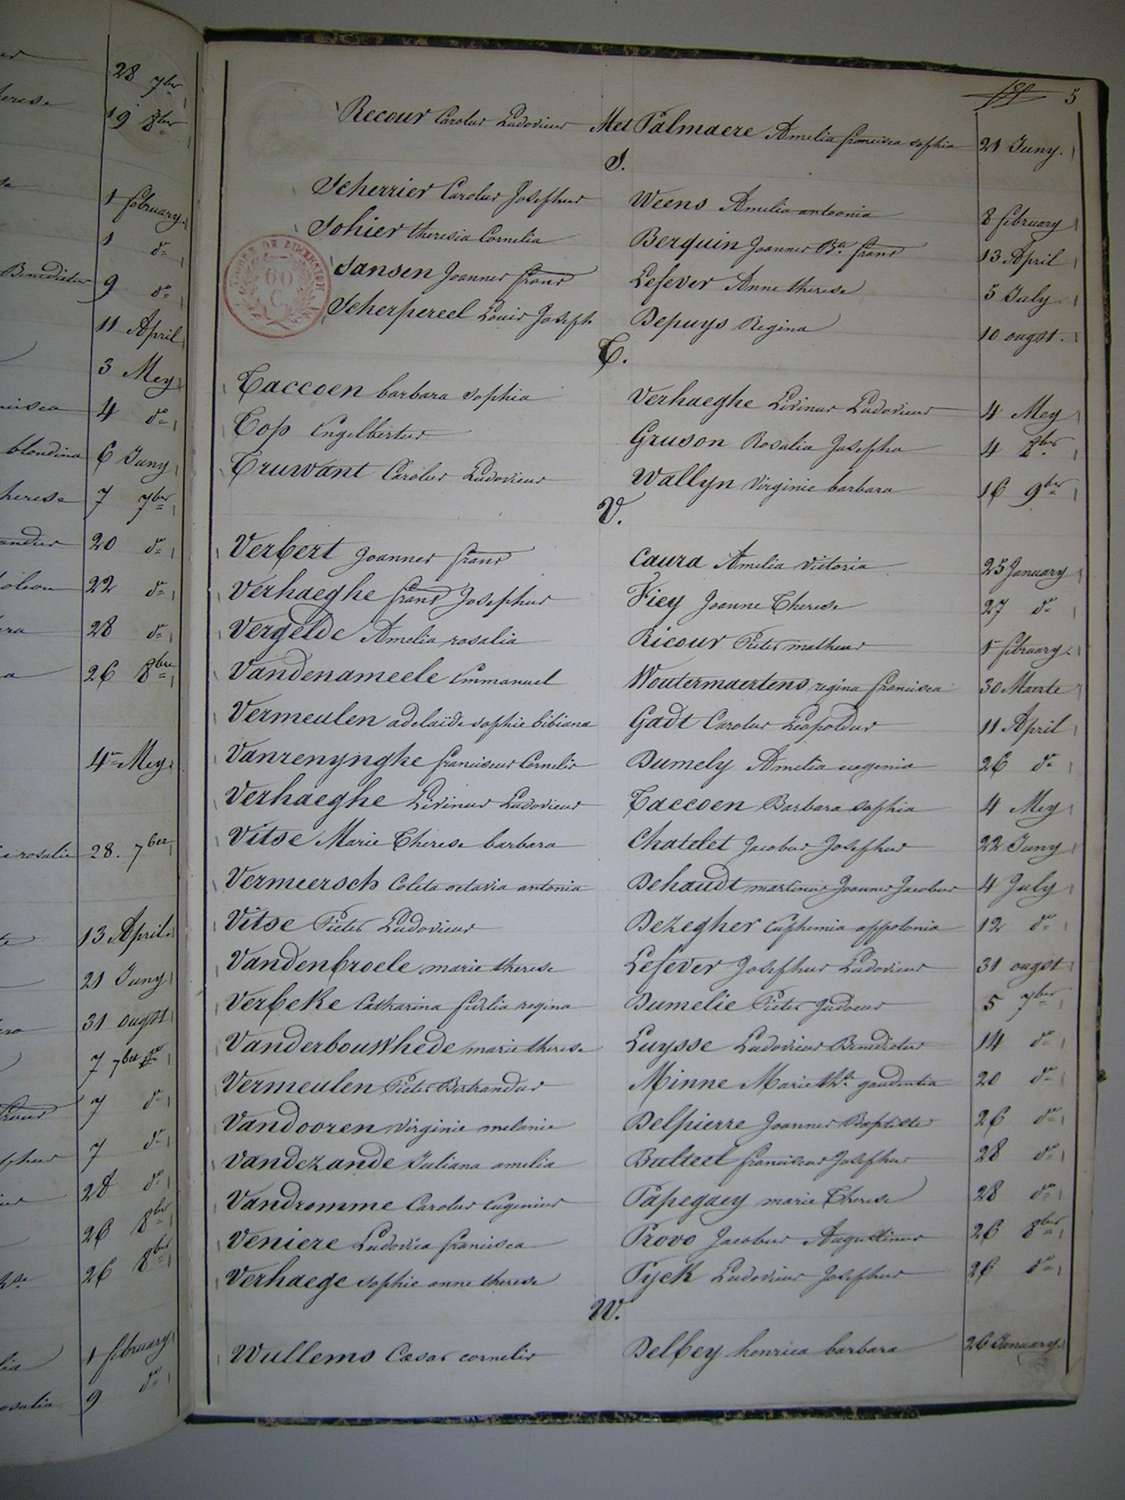 5
Recour Carolus Ludovicus Met Palmaere Amelia francisca sophia 21 Juny.
S.
Scherrier Carolus Josephus Weens Amelia antonia 8 february
Sohier theresia Cornelia Berquin Joannes Bta. frans 13 April
Sansen Joannes frans Lefever Anne therese 5 July
Scherpereel Louis Joseph Depuys Regina 10 ougst.
T.
Taccoen barbara sophia Verhaeghe Livinus Ludovicus 4 Mey
Top Engelbertus Gruson Rosalia Josepha 4 8ber
Truwant Carolus Ludovicus Wallyn Virginie barbara 16 9ber
V.
Verbert Joannes frans Caura Amelia victoria 25 January
Verhaeghe frans Josephus Fiey Joanne Therese 27 do
Vergelde Amelia rosalia Ricour Pieter matheus february
Vandenameele Emmanuel Woutermaertens regina francisca 30 Maerte
Vermeulen adelaïde sophie bibiana Gadt Carolus Leopoldus 11 April
Vanrenynghe franciscus Cornelis Dumely Amelia eugenia 26 do
Verhaeghe Livinus Ludovicus Taccoen Barbara sophia 4 Mey
Vitse Marie Therese barbara Chatelet Jacobus Josephus 22 Juny
Vermeersch Coleta octavia antonia Dehaudt martinus Joannes Jacobus 4 July
Vitse Pieter Ludovicus Dezegher Euphemia appolonia 12 do
Vandenbroele marie therese Lefever Josephus Ludovicus 31 ougst
Verbeke Catharina regina Dumelie Pieter Judocus 5 7ber
Vanderbouwhede marie therese Luysse Ludovicus Benedictus 14 do
Vermeulen Pieter Bertrandus Minne Marie the. gaudentia 20 do
Vandooren Virginie melanie Delpierre Joannes Baptiste 26 do
Vandezande Juliana amelia Bulteel franciscus Josephus 28 do
Vandromme Carolus Eugenius Papegaey marie Therese 28 do
Veniere Ludovica francisca Provo Jacobus Augustinus 26 8ber
Verhaege sophie anne therese Pyck Ludovicus Josephus 26 do
W.
Wullems Cæsar cornelis Delbey henrica barbara 26 January